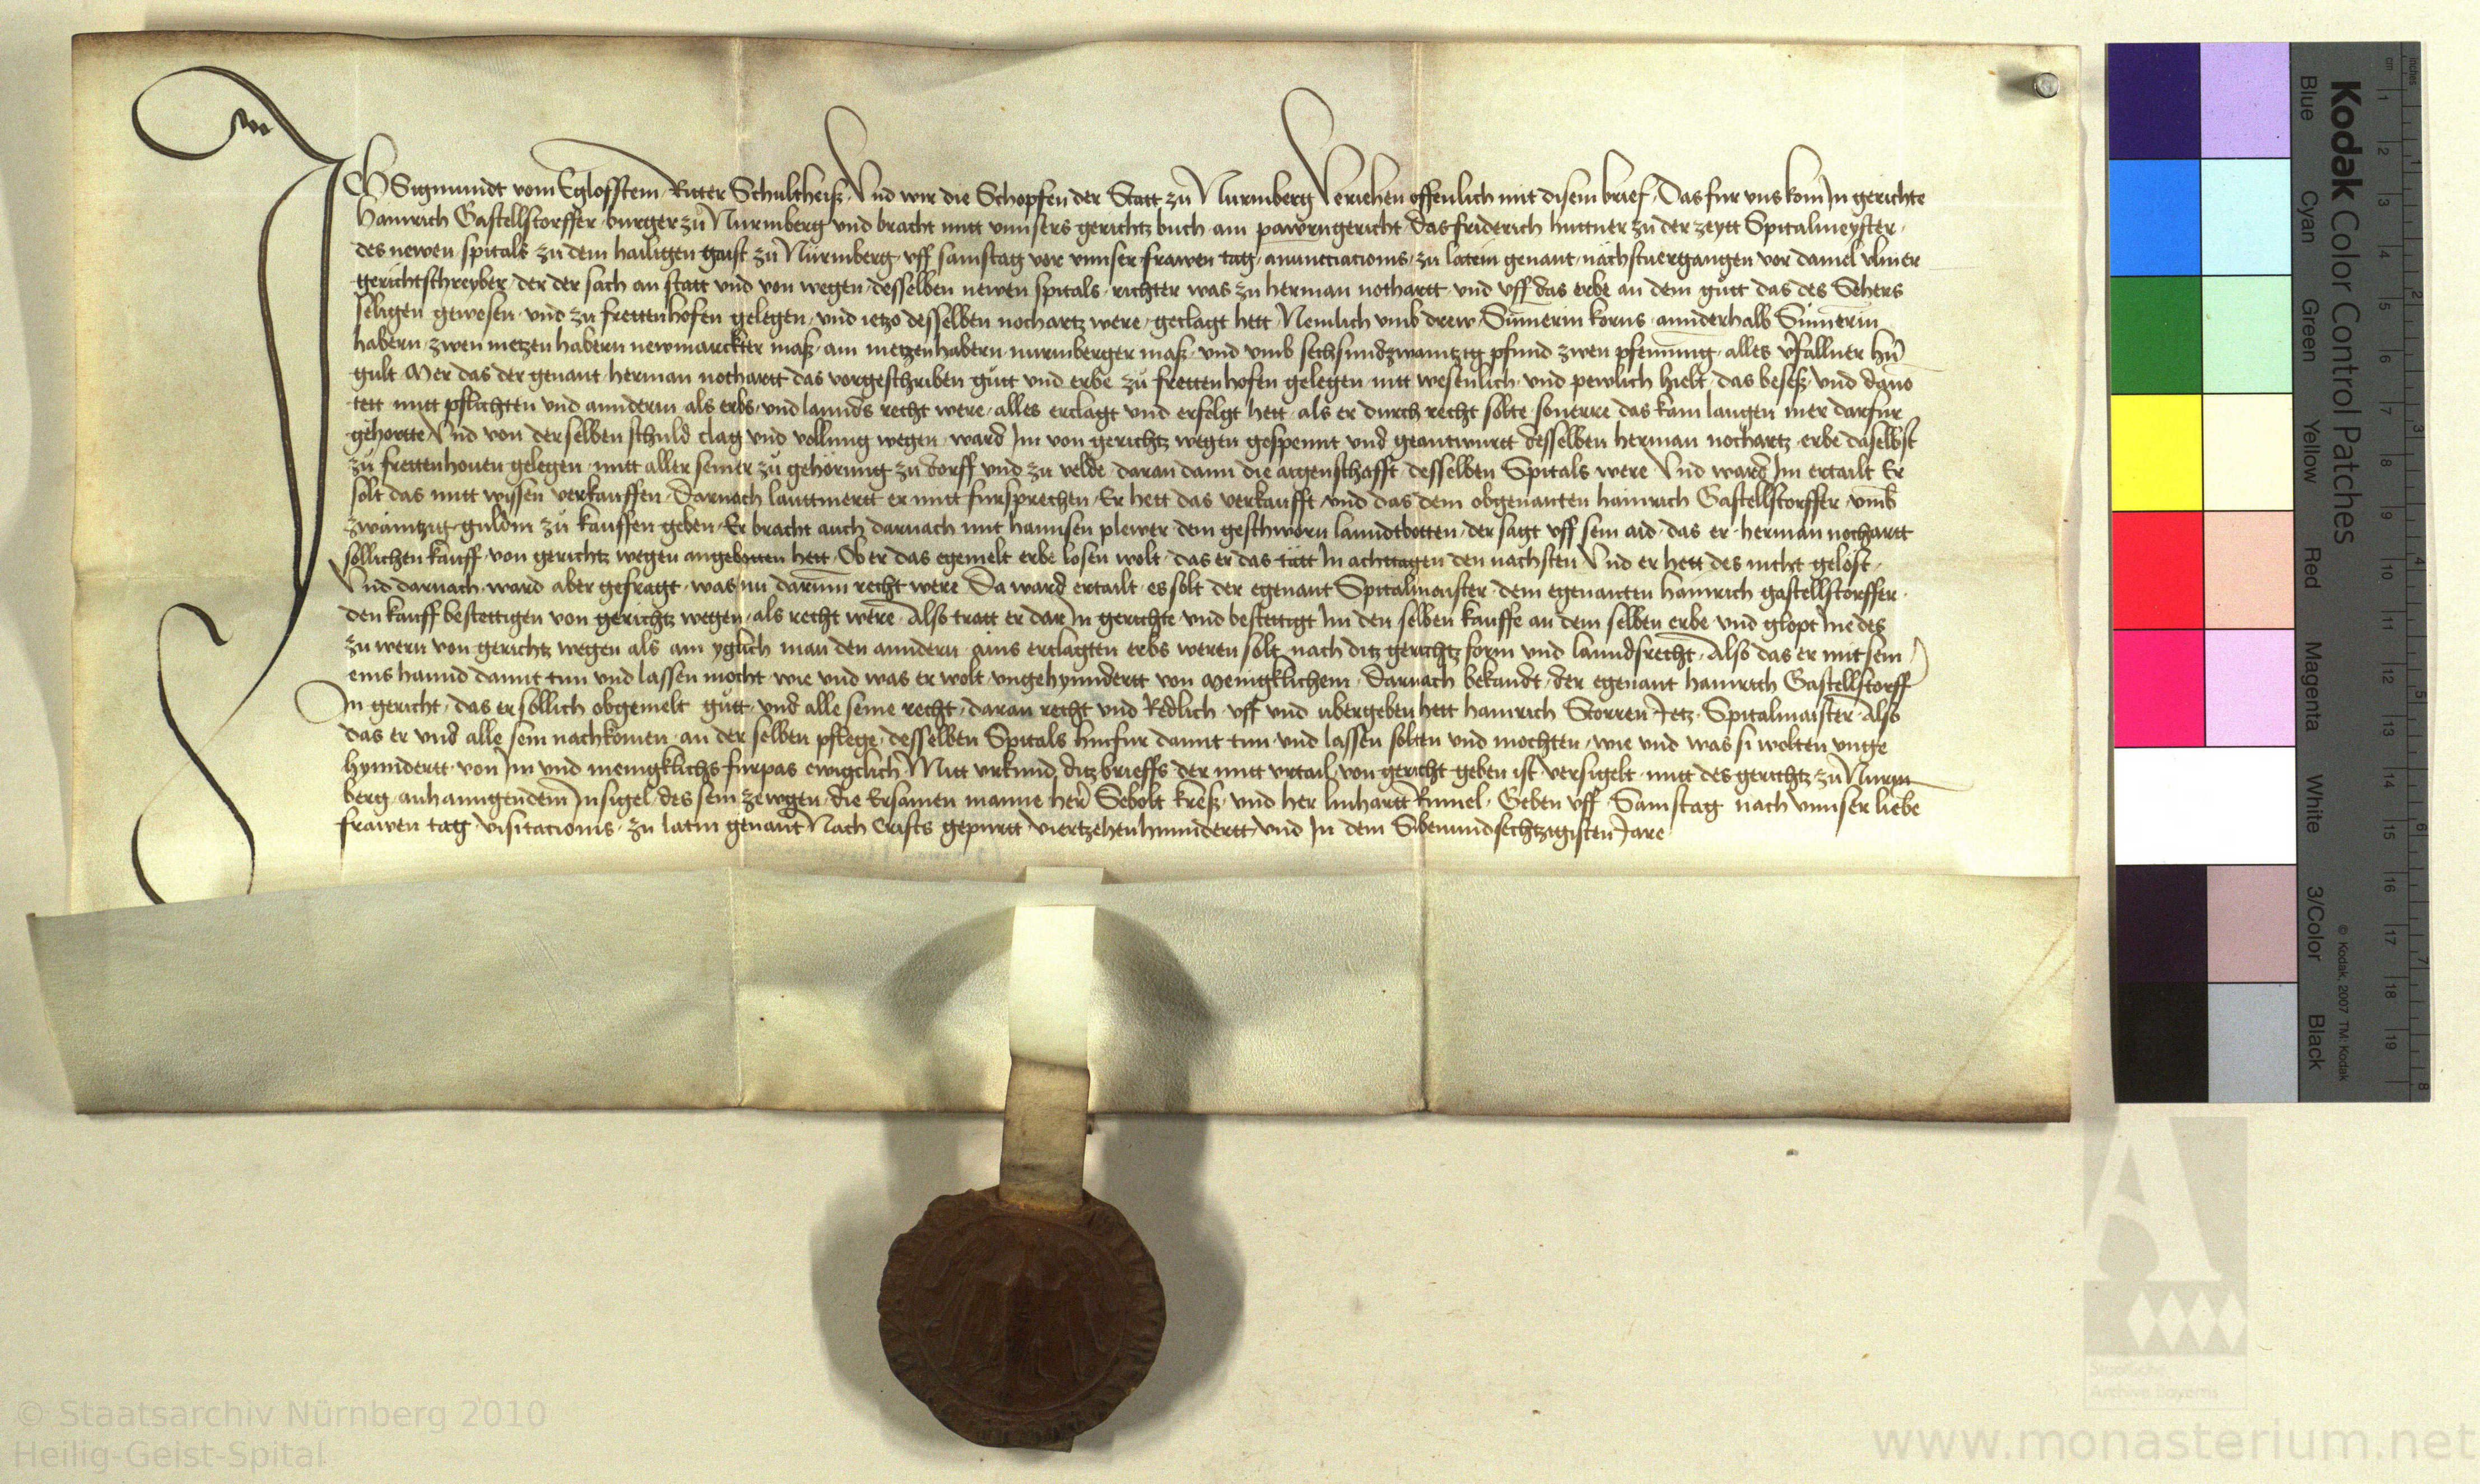 ICH Sigmundt vom Egloffstein Ritter Schultheiß Vnd wir die Schopfen der Statt zů Nurmberg Veriehen offenlich mit disem brief, Das fur vns kom Jn gerichte
Hainrich Gastellstorffer burger zů Nurmberg vnd bracht mitt vnnsers gerichtz buch am pawrngericht das friderich huttner zů der zeytt Spitalmeyster
des newen spitals zů dem hailigen gaist zů Nurmberg vff samstag vor vnnser frawen tag anuncciacionis zu latein genant nachstuergangen vor daniel vlmer
gerichtschreyber der der sach an statt vnd von wegen desselben newen spitals richter was zu herman nothartt vnd vff das erbe an dem gůtt das des Sehers
seligen gewesen vnd zu frettenhofen gelegen vnd ietzo desselben nothartz were geclagt hett Nemlich vmb drew Sümerin korns annderhalb Sümerin
habern zwen metzen habern newmarckter maß am metzen habern nurmberger maß vnd vmb sechsundzwaintzig pfund zwen pfenning alles v'fallner hin
gult Mer das der genant herman nothartt das vorgeschriben gůtt vnd erbe zů frettenhofen gelegen nitt wesenlich vnd pewlich hielt das beseß vnd dauo
tett mitt pflichten vnd annderm als erbs vnd lannds recht were alles erclagt vnd erfolgt hett als er durch recht solte souerre das kain laugen mer darfur
gehortte Vnd von der selben schuld clag vnd vollung wegen ward Jm von gerichtz wegen gespennt vnd geantwurtt desselben herman nothartz erbe daselbst
zů frettenhouen gelegen mitt aller seiner zů gehörung zů dorff vnd zů velde daran dann die aigenschafft desselben Spitals were Vnd ward Jm ertailt Er
solt das mitt wissen verkauffen Darnach lauttmertt er mitt fursprechen Er hett das verkaufft vnd das dem obgenanten hainrich Gastellstorffer vmb
zwaintzig guldin zů kauffen geben Er bracht auch darnach mit hannsen plewer dem geschworn lanndtbotten der sagt vff sein aid das er herman nothartt
sollichen kauff von gerichtz wegen angebotten hett Ob er das egemelt erbe losen wolt das er das tätt Jn achttagen den nachsten Vnd er hett des nicht gelöst
Vnd darnach ward aber gefragt was nu darumm recht were Da ward ertailt es solt der egenant Spitalmaister dem egenanten hainrich gastellstorffer
den kauff bestettigen von gerichtz wegen als recht were Also tratt er dar Jn gerichte vnd bestettigt Jm den selben kauffe an dem selben erbe vnd glopt Jme des
zu wern von gerichtz wegen als am yglich man den anndern ains erclagten erbs weren solt nach ditz gerichtz form vnd lanndsrecht Also das er mit sein
eins hannd damit tun vnd lassen mocht wie vnd was er wolt vngehynndertt von menigklichem Darnach bekandt der egenant hainrich Gastellstorff
Jn gericht das er sollich obgemelt gůtt vnd alle seine recht daran recht vnd Redlich vff vnd vbergeben hett hainrich Storren Jetz Spitalmaister Also
das er vnd alle sein nachkomen an der selben pflege desselben Spitals hinfur damit tun vnd lassen solten vnd mochten wie vnd was si wolten vnge
hynndertt von Jm vnd menigklichs furpas ewigclich Mitt vrkund ditz brieffs der mitt vrtail von gericht geben ist versigelt mitt des gerichtz zů Nurm
berg anhanngendem Jnsigel des sein zewgen die Ersamen manne her Sebolt kreß vnd her linhartt Rumel Geben vff Samstag nach vnnser liebe
frawen tag visitacionis zu latin genant Nach Crists gepurtt viertzehenhunndertt vnd Jn dem Sibenundsechtzigisten Jare
Kodak Color Control Patches
Blue Cyan Green Yellow Red Magenta White 3/Color Black
© Kodak, 2007 TM: Kodak
cm 1 2 3 4 5 6 7 8 9 10 11 12 13 14 15 16 17 18 19
inches 1 2 3 4 5 6 7 8
Staatliche
Archive Bayerns
© Staatsarchiv Nürnberg 2010
Heilig-Geist-Spital
www.monasterium.net